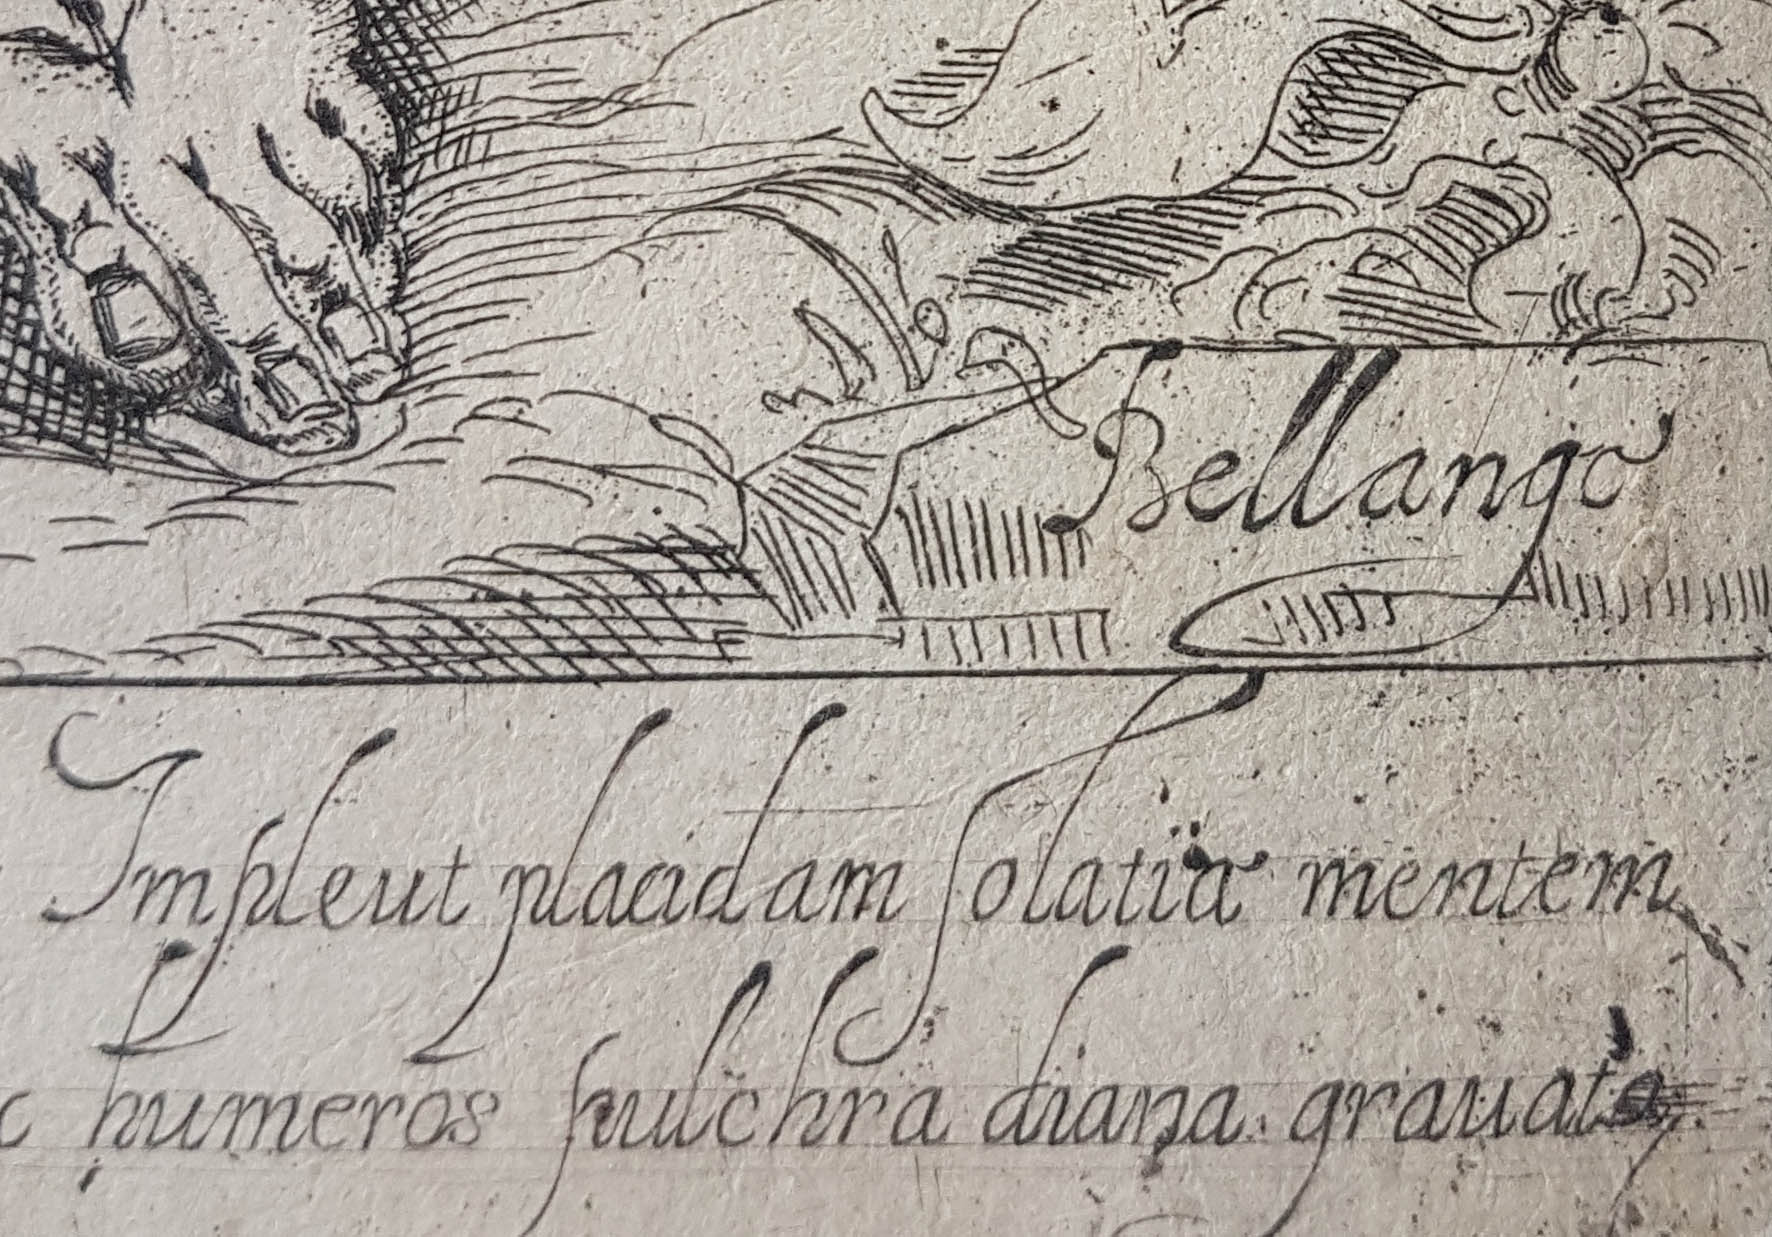 Bellange
Impleut placidam solatia mentem
humeros pulchra diana